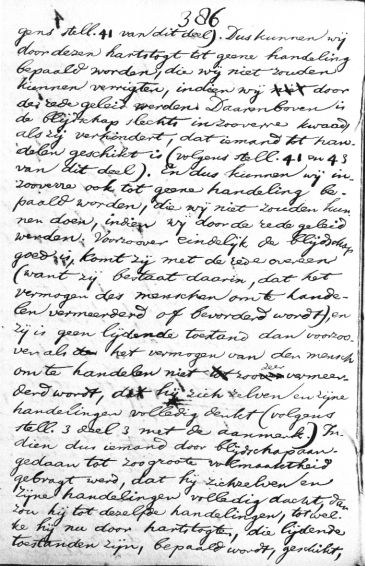 386
gens stell. 41 van dit deel). Dus kunnen wij
door dezen hartstogt tot geene handeling
bepaald worden, die wij niet zouden
kunnen verrigten, indien wij door
de rede geleid werden. Daarenboven is
de blijdschap slechts in zooverre kwaad,
als zij verhindert, dat iemand tot han-
delen geschikt is (volgens stell. 41 en 43
van dit deel). En dus kunnen wij in-
zooverre ook tot geene handeling be-
paald worden, die wij niet zouden kun
nen doen, indien wij door de rede geleid
werden. Voorzoover eindelijk de blijdschap
goed is, komt zij met de rede overeen
(want zij bestaat daarin, dat het
vermogen des menschen om te hande-
len vermeerderd of bevorderd wordt), en
zij is geen lijdende toestand dan voorzoo-
ver als het vermogen van den mensch
om te handelen niet zoozeer vermeer-
derd wordt, dat hij zich zelven en zijne
handelingen volledig denkt (volgens
stell. 3 deel 3 met de aanmerk.) In-
dien dus iemand door blijdschap aan-
gedaan tot zoo groote volmaaktheid
gebragt werd, dat hij zichzelven en
zijne handelingen volledig dacht, dan
zou hij tot dezelfde handelingen, tot wel-
ke hij nu door hartstogten, die lijdende
toestanden zijn, bepaald wordt, geschikt,